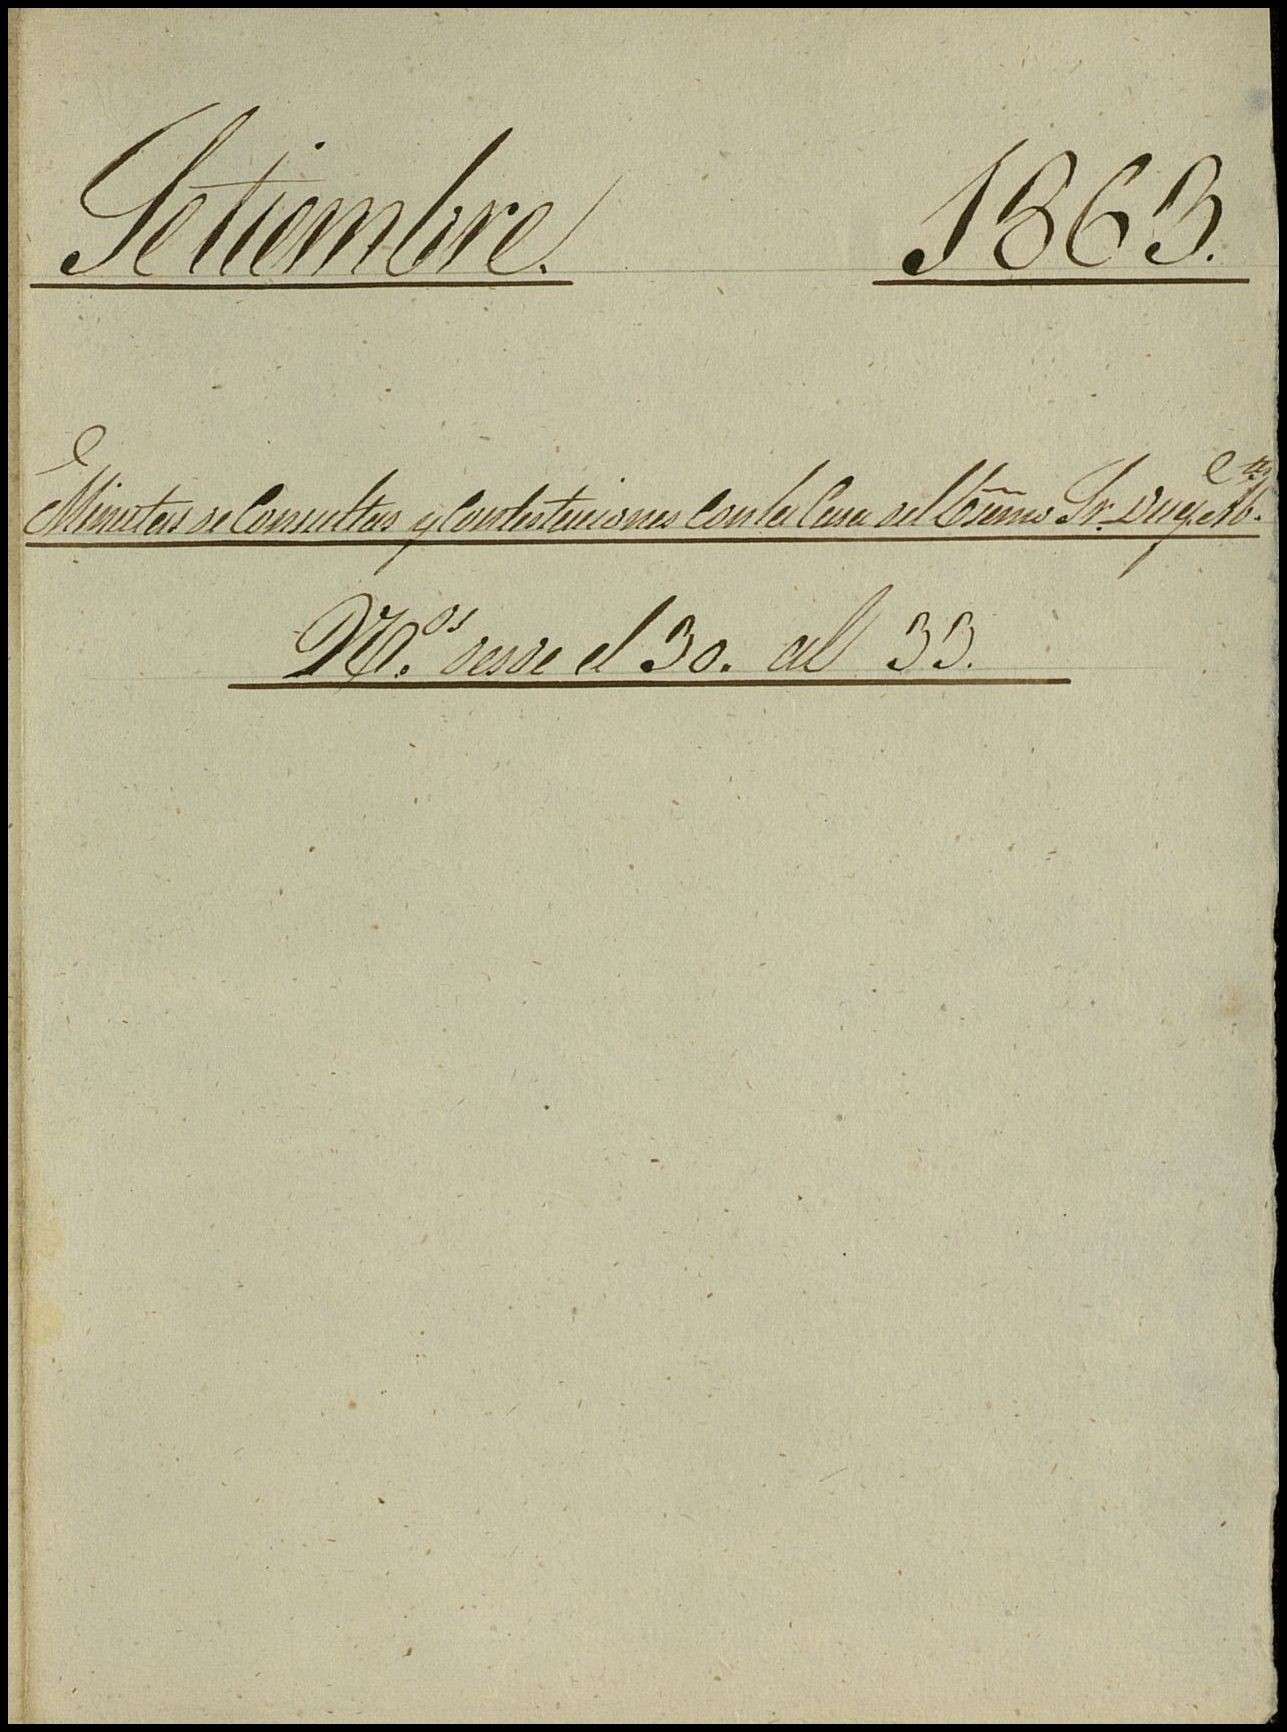 Setiembre. 1863.
Minutas de Consultas y Contestaciones con la Casa del Exmo Sr. Duq.e
N.os desde el 30. al 33.